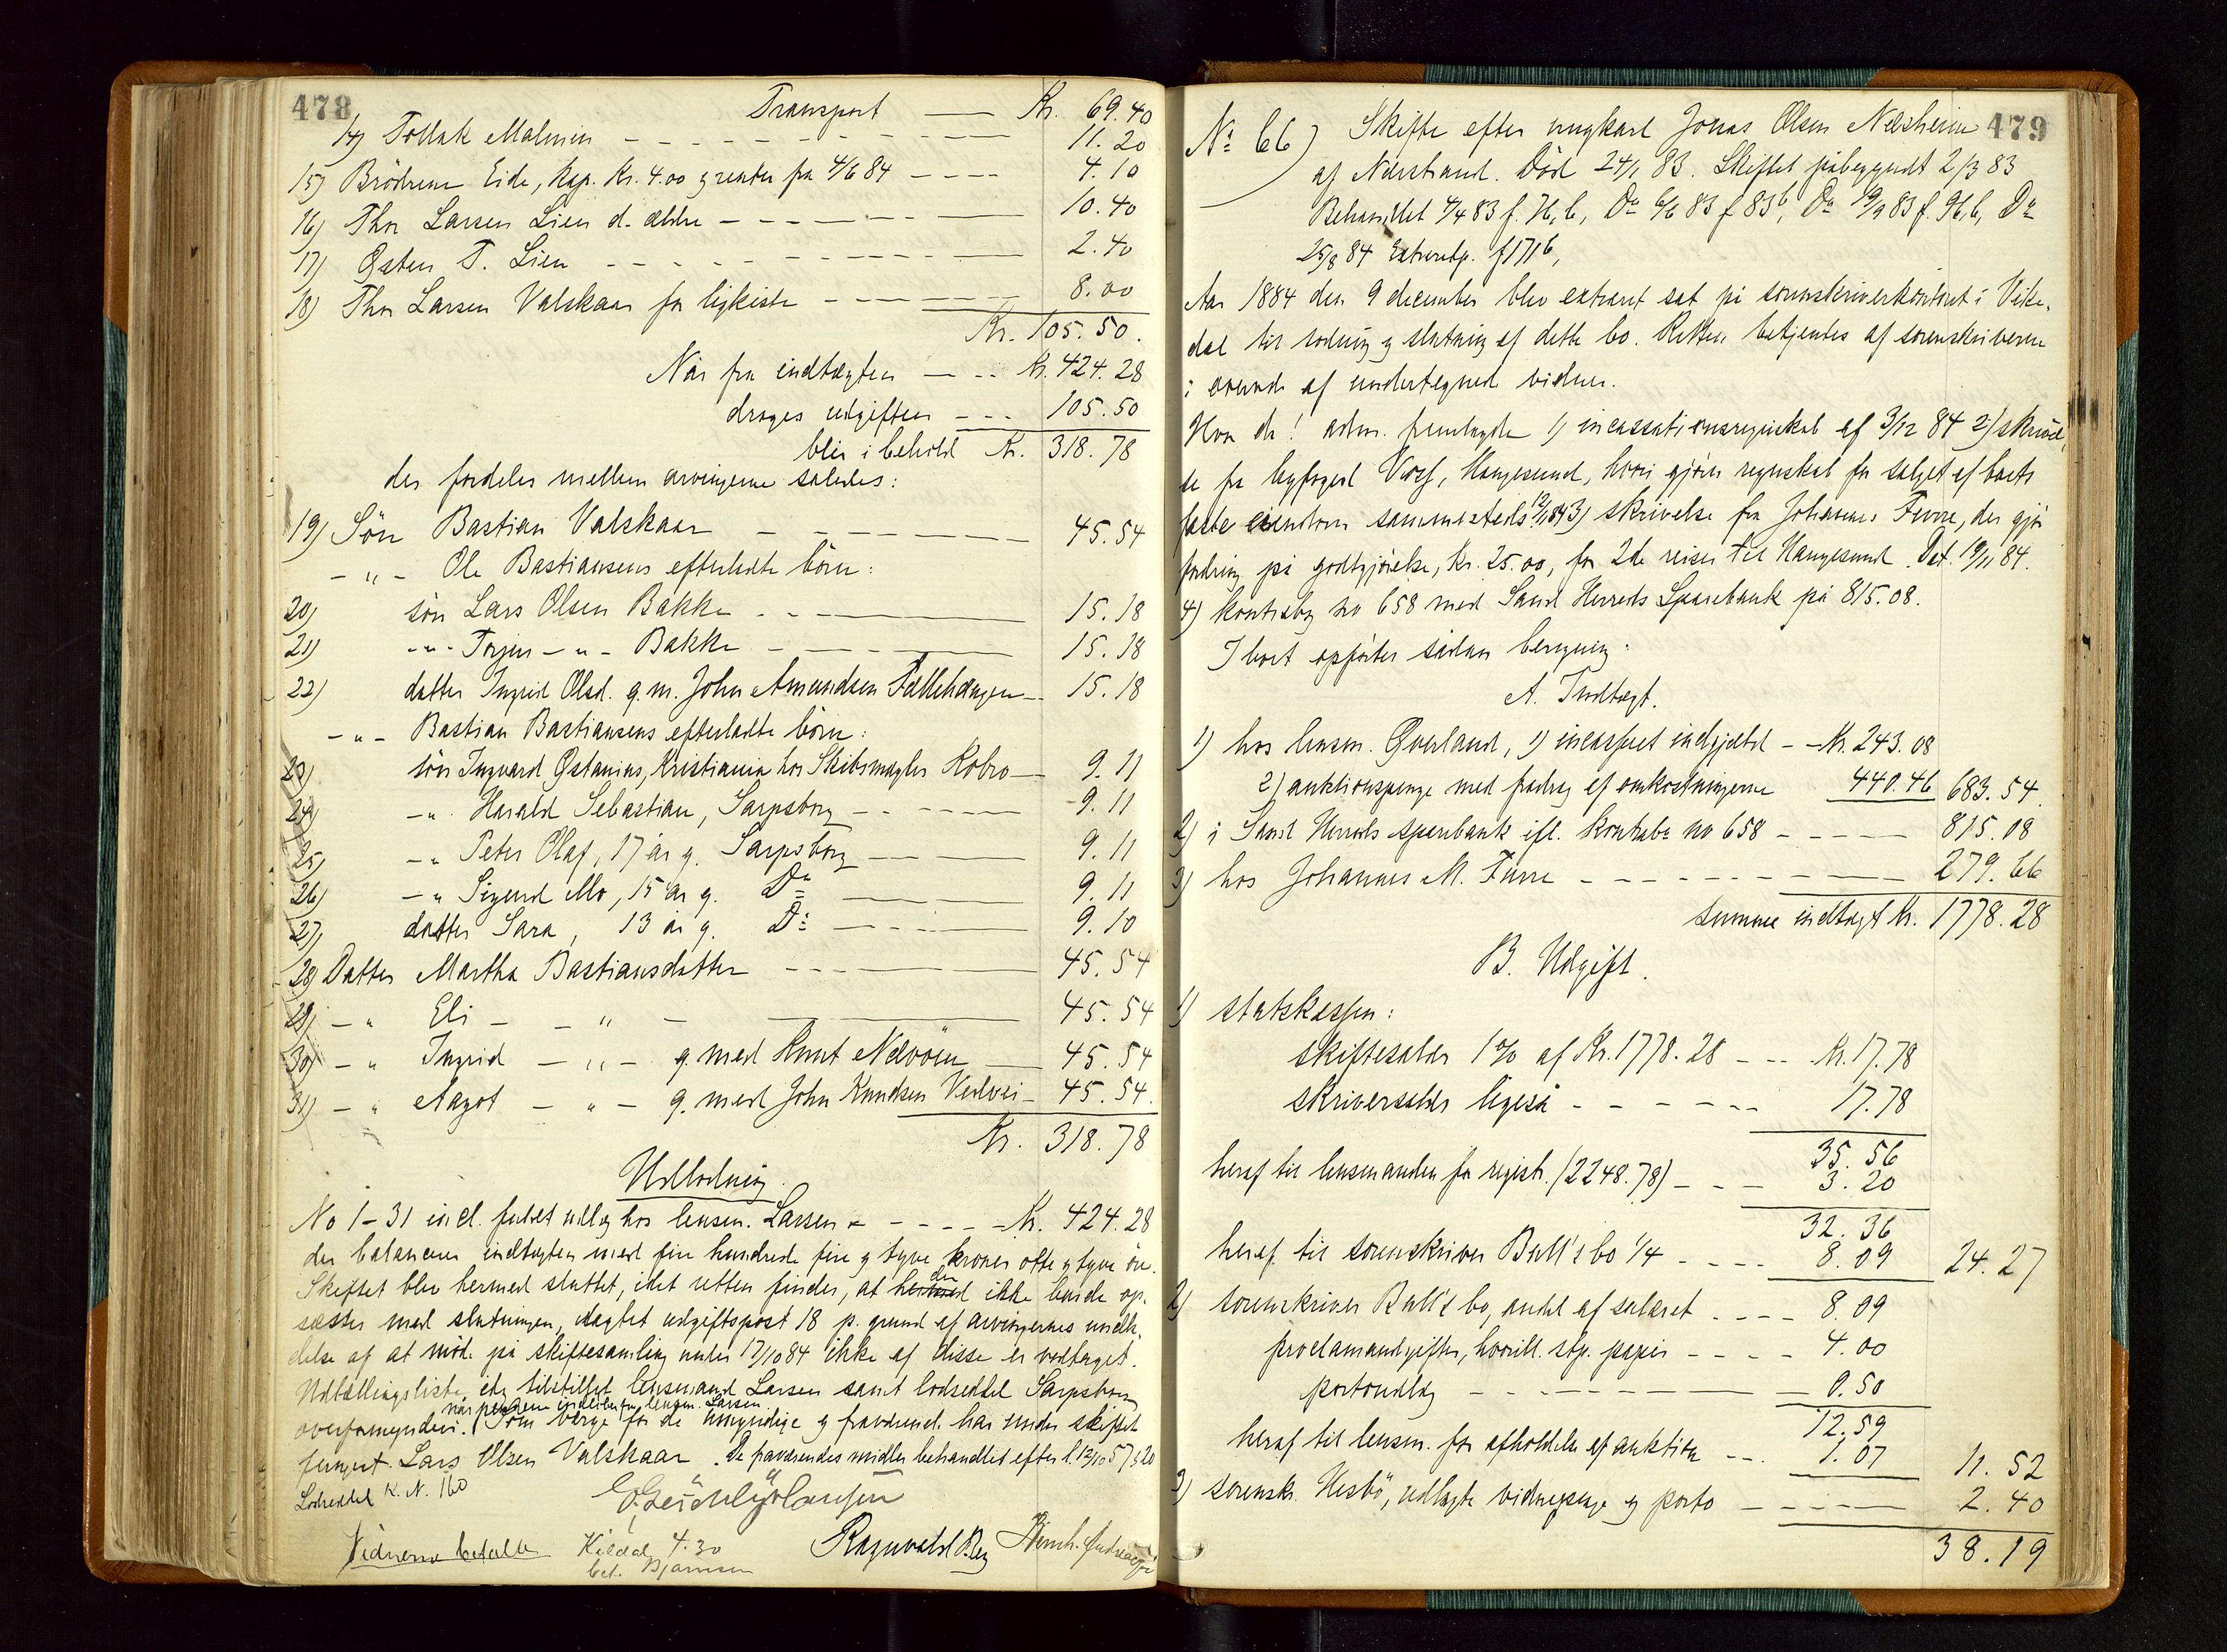 478
Transport — Kr. 69.40
14) Tollak Malmin — 11.20
15) Brödrene Eide, kap. Kr. 4.00 g renter fra 4/6 84 — 4.10
16) Thor Larsen Lien d. ældre — 10.40
17) Östen T. Lien — 2.40
18) Thor Larsen Valskaar for ligkiste — 8.00
Kr. 105.50.
Når fra indtægten — Kr. 424.28
drages udgiften — 105.50
blir i behold Kr. 318.78
der fordeles mellem arvingerne således:
19) Sön Bastian Valskaar — 45.54
- „ - Ole Bastiansens efterladte börn:
20) sön Lars Olsen Bakke — 15.18
21) - „ - Torjus - „ - Bakke — 15.18
22) datter Ingrid Olsd. g. m. John Amundsen — 15.18
- „ - Bastian Bastiansens efterladte börn:
23) sön Ingvard Östanius, Kristiania hos Skibsmægler Kobro — 9.11
24) - „ Harald Sebastian, Sarpsborg — 9.11
25) - „ Peter Olaf, 17 år g. Sarpsborg — 9.11
26) - „ Sigurd Mo, 15 år g. Do — 9.11
27) datter Sara, 13 år g. Do — 9.10
28) Datter Martha Bastiansdatter — 45.54
29) - „ Eli - „ - — 45.54
30) - „ Ingrid - „ - g. med Knut — 45.54
31) - „ Aagot - „ - g. med John Knudsen — 45.54.
Kr. 318.78
Udlodning.
No 1-31 incl. udlæg hos lensm. Larsen — Kr. 424.28
der balancerer indtægten med fire hundrede fire g tyve kroner otte g tyve öre.
Skiftet blev hermed sluttet, idet retten finder, at der ikke burde op-
sættes med slutningen, uagtet udgiftspost 18 p. grund af arvingernes undla-
delse af at möde på skiftesamling under 17/10 84 ikke af disse er vedtaget.
Udbetalingsliste tilstillet lensmand Larsen samt lodseddel Sarpsborg
når pengene indlöber fra lensm. Larsen
overformynderi. Som værge for de umyndige g fraværende har under skiftet
fungert Lars Olsen Valskaar. De fraværendes midler behandlet efter l. 12/10 57 § 20
Lodseddel K. N. 160
Vidnerne betalte Kildal 4.30 Ragnvald Berg
bet. Bjørnsen
479
No 66) Skifte efter ungkarl Jonas Olsen Nedsheim
af Nærstrand. Död 24/1 83. Skiftet påbegyndt 2/3 83
Behandlet 4/4 83 f. 76, b, Do 6/6 83 f 83b, Do 19/9 83 f. 96, b, Do
25/8 84 Extraretsp. f 171b,
Aar 1884 den 9 december blev extraret sat på sorenskriverkontoret i Vike-
dal til lodning g slutning af dette bo. Retten betjentes af sorenskriveren
i overvær af undertegnede vidner.
Hvor da! adm. fremlagde 1) incassationsregnskab af 3/12 84 2) skrivel-
se fra byfoged Haugesund, hvori gjöres regnskab for salget af boets
faste eiendom sammesteds 12/11 84 3) skrivelse fra Johannes Furre, der gjör
fordring på godtgjörelse, Kr. 25.00, for 2de reiser til Haugesund. Dat. 19/11 84.
4) kontrabog no 658 med Sand Herreds Sparebank på 815.08.
I boet opförtes sådan beregning:
A. Indtægt.
1) hos lensm. Qverland, 1) incasseret indgjæld — Kr. 243.08
2) auktionspenge med fradrag af omkostningerne 440.46 683.54.
2) i Sand Herreds sparebank ifl. kontrabog no 658 — 815.08
3) hos Johannes M. Furre — 279.66
summa indtægt Kr. 1778.28
B. Udgift.
1) statskassen:
skiftesalær 1% af Kr. 1778.28 — Kr. 17.78
skriversalær ligeså — 17.78
35.56
heraf til lensmanden for registr. (2248.78) — 3.20
32.36
heraf til sorenskriver Bull's bo 1/4 — 8.09 24.27
2) sorenskriver Bull's bo, andel af salæret — 8.09
proclamaudgifter, hvorill. stp. papir — 4.00
portoudlæg — 0.50
12.59
heraf til lensm. for afholdelse af auktion — 1.07 11.52
3) sorenskr. Hesbö, udlagte vidnepenge g porto — 2.40
38.19